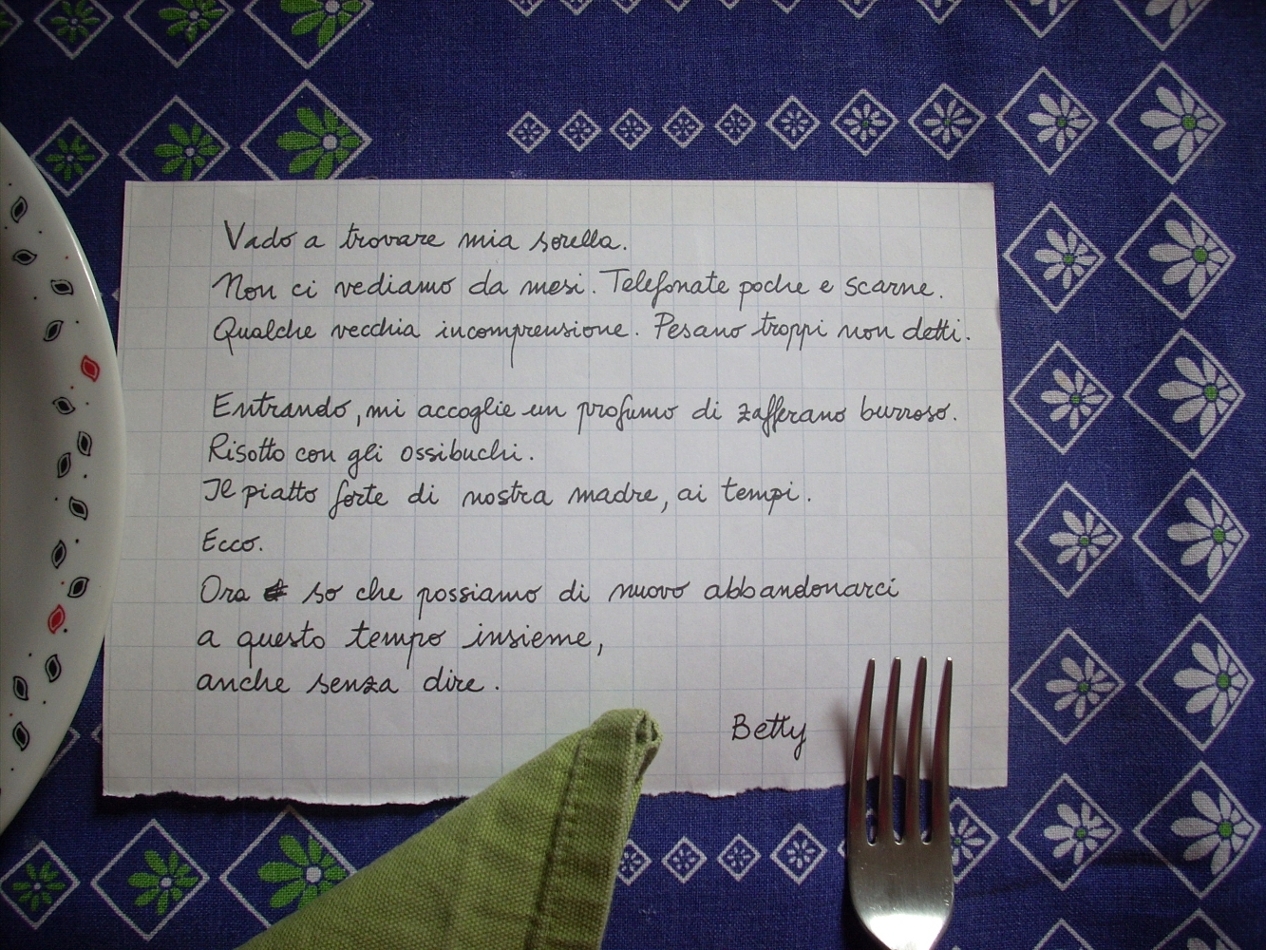 Vado a trovare mia sorella.
Non ci vediamo da mesi. Telefonate poche e scarne.
Qualche vecchia incomprensione. Pesano troppi non detti.
Entrando, mi accoglie un profumo di zafferano burroso.
Risotto con gli ossibuchi.
Il piatto forte di nostra madre, ai tempi.
Ecco.
Ora so che possiamo di nuovo abbandonarci
a questo tempo insieme,
anche senza dire.
Betty